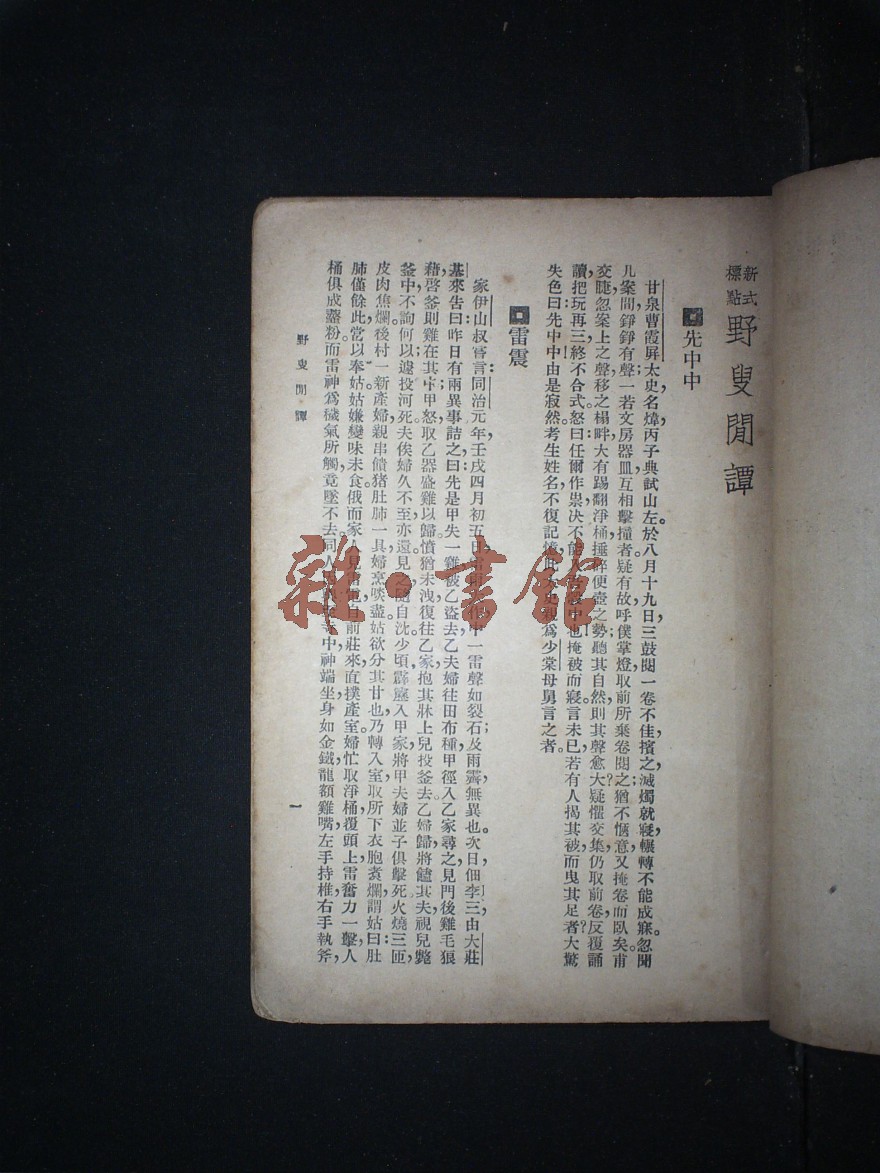 新式
標點
野叟閒譚
先中中
甘泉曹霞屛太史,名煒,丙子典試山左,於八月十九日三鼓閱一卷不佳,擯之,滅燭就寢,輾轉不能成寐。忽聞
几案間錚錚有聲,一若文房器皿互相擊撞者,疑有故,呼僕掌燈,取前所棄卷閱之,猶不愜意,又掩卷而臥矣。甫
交睫,忽案上之聲,移之榻畔,大有踢翻淨桶,捶碎便壺之勢,聽其自然,則其聲愈大,疑懼交集,仍取前卷,反覆誦
讀,把玩再三,終不合式,怒曰:任爾作祟,決不能入吾彀中也!掩被而寢,言未已,若有人揭其被而曳其足者,大驚
失色曰:先中中!由是寂然。考生姓名,不復記憶,此太史親爲少棠母舅言之者。
雷震
家伊山叔嘗言:同治元年壬戌四月初五日,雷雨
中一雷聲如裂石,及雨霽,無異也。次日,佃李三由大莊
基來告曰:昨日有兩異事,詰之,曰:先是甲失一雞,被乙盜去,乙夫婦往田布種,甲徑入乙家尋之,見門後雞毛狼
藉,啓釜則雞在其中,甲怒,取乙器盛雞以歸,憤猶未洩,復往乙家抱其牀上兒投釜去,乙婦歸,將饁其夫,視兒斃
釜中,不詢何以,遽投河死,夫俟婦久不至,亦還,見之,隨自沈,少頃,霹靂入甲家,將甲夫婦並子俱擊死,火燒三匝,
皮肉焦爛。後村一新產婦,親串饋猪肚肺一具,婦烹啖盡,姑欲分其甘也,乃轉入室,取所下衣胞煑爛,謂姑曰:肚
肺僅餘此,當以奉姑,姑嫌變味,未食。俄而家人見雷電自前莊來,直撲產室,婦忙取淨桶覆頭上,雷奮力一擊,人
桶俱成虀粉。而雷神爲穢氣所觸,竟墜不去,同人
中,神端坐,身如金鐵,龍額雞嘴,左手持椎,右手執斧,
野叟閒譚
一
雜·書館